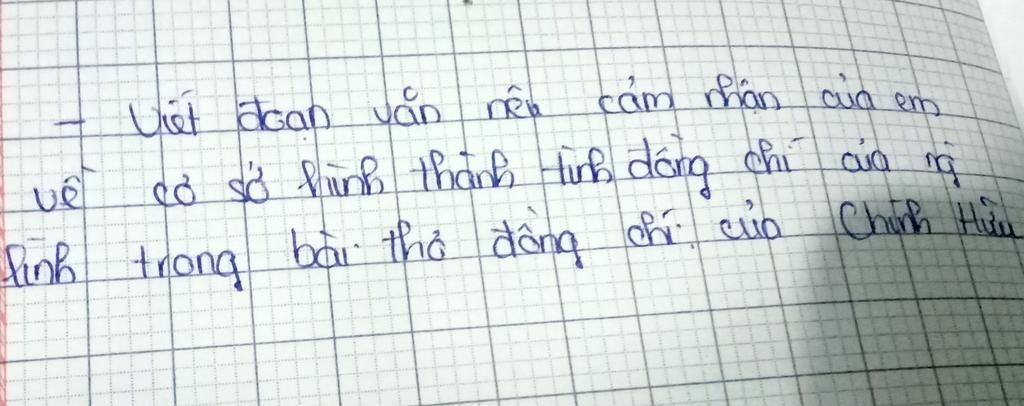 - Viết đoạn văn nêu cảm nhận của em
về cơ sở hình thành tình đồng chí của ng
lính trong bài thơ đồng chí của Chính Hữu